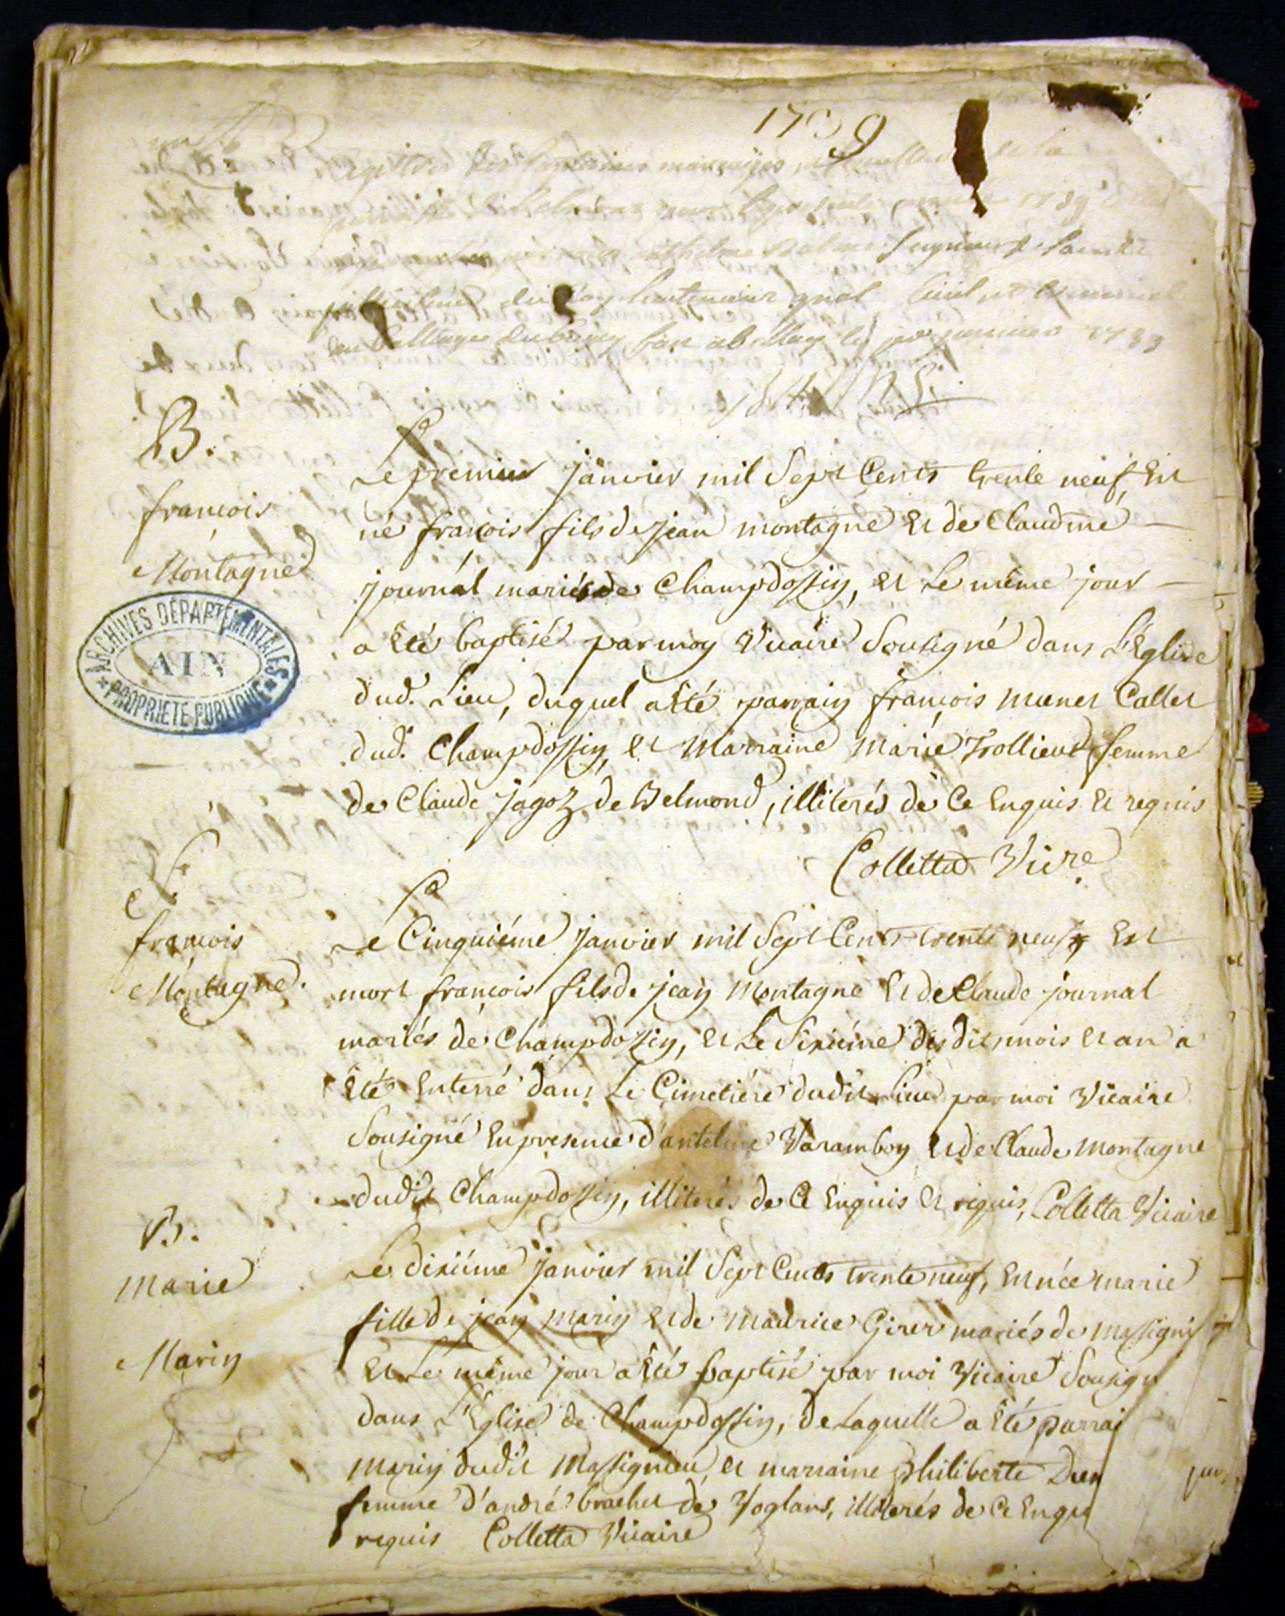 1739
Seigneur de
du Roy Lieutenant gnal Civil et Criminel
au Balliage du Bugey janvier 1739
B.
françois
Montagne
ARCHIVES DÉPARTEMENTALES
AIN
PROPRIÉTÉ PUBLIQUE
Le premier janvier mil Sept Cents trente neuf, Est
né françois fils de jean montagne Et de Claudine
journal mariés de Champdossin, et Le même jour
a Eté baptisé par moy Vicaire Sousigné dans L'Eglise
dud. Lieu, duquel a Eté parrain françois Callet
dud. Champdossin, et Marraine Marie Trollieut femme
de Claude Jagoz de Belmond, illiterés de Ce Enquis et requis
Colletta Vicre
S.
françois
Montagne.
Le Cinquiéme janvier mil Sept Cents trente neuf Est
mort françois fils de jean Montagne Et de Claude journal
mariés de Champdossin, et Le Sixiéme desdits mois et an a
Eté Enterré dans Le Cimetiére dudit Lieu par moi Vicaire
Sousigné En presence d'antelme Varamboy et de Claude Montagne
dudit Champdossin, illiterés de Ce Enquis et requis, Colletta Vicaire
B.
Marie
Marin
Le dixiéme janvier mil Sept Cents trente neuf, Est née marie
fille de jean Marin et de Maurice Girer mariés de Massignieu
Et Le même jour a Eté baptisé par moi Vicaire Sousign
dans L'Eglise de Champdossin, de Laquelle a Eté parrai
Marin dudit Massignieu, et marraine philiberte
femme d'andré brachet de Voglans, illiterés de Ce Enqu
requis Colletta Vicaire